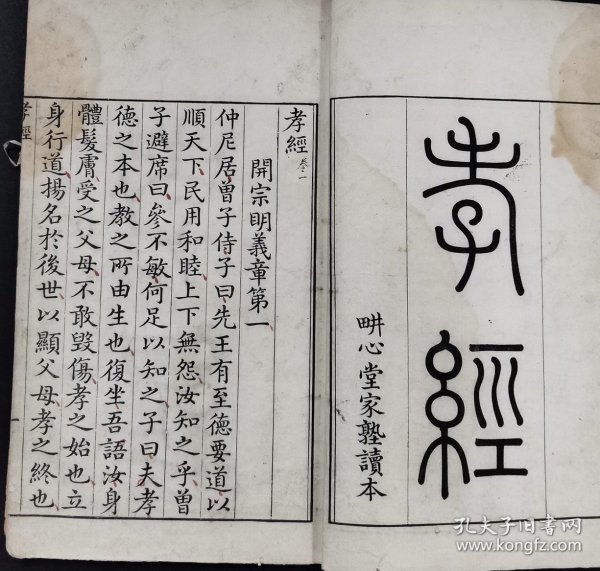 孝經
畊心堂家塾讀本
孝經 卷一
開宗明義章第一
仲尼居曽子侍子曰先王有至德要道以
順天下民用和睦上下無怨汝知之乎曽
子避席曰參不敏何足以知之子曰夫孝
德之本也教之所由生也復坐吾語汝身
體髮膚受之父母不敢毀傷孝之始也立
身行道揚名於後世以顯父母孝之終也
孝經
孔夫子旧书网
www.kongfz.com